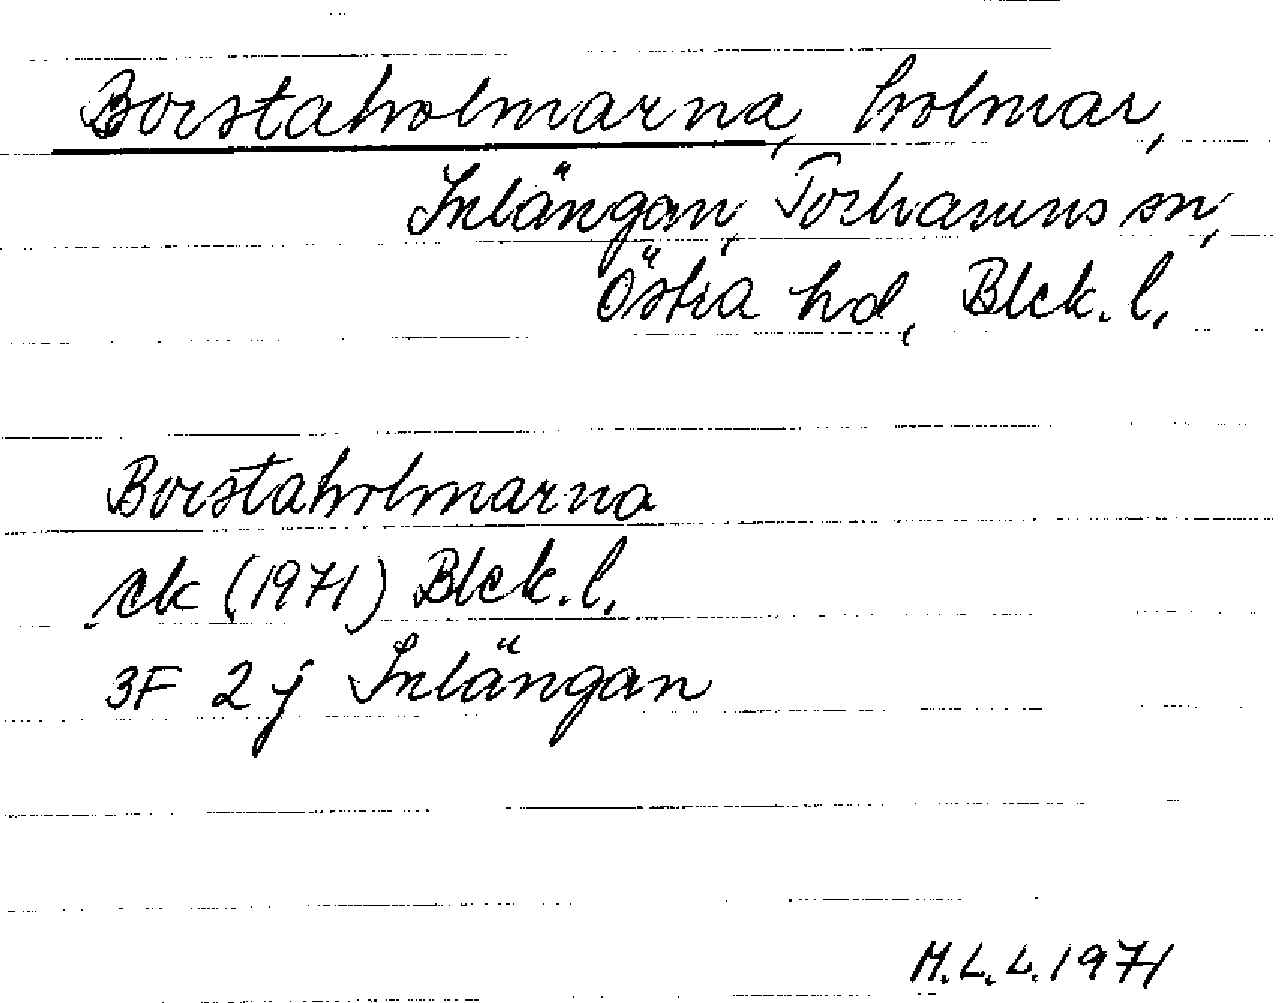 Borstaholmarna, holmar,
Inlängan, Torhamns sn,
Östra hd, Blek. l.
Borstaholmarna
ek (1971) Blek. l.
3F 2j Inlängan
M.L.L. 1971